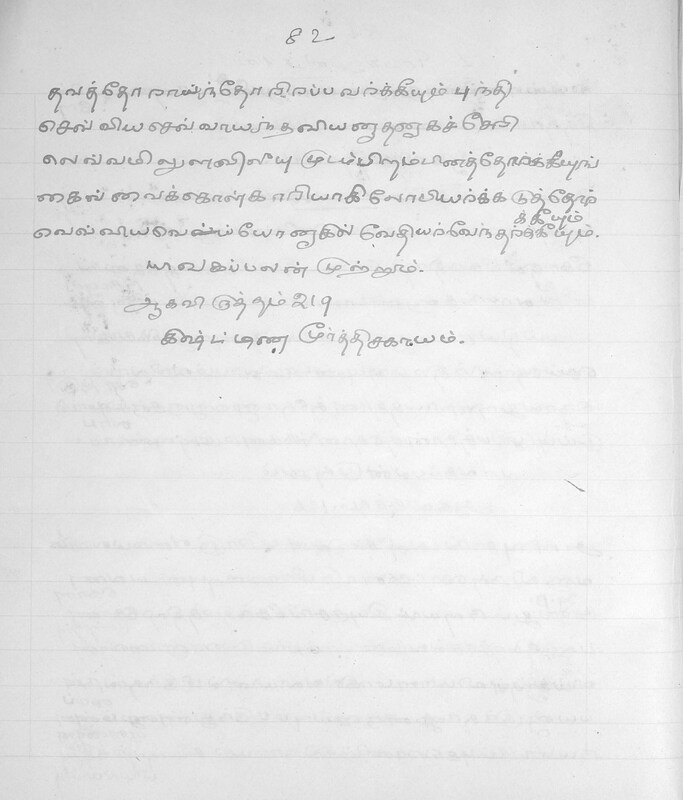 82
தவத்தோ ராய்ந்தோ ரிறப்ப வர்க்கீயும் புந்தி
செவ்விய செவ்வாயந் தவியனு தனுகச் சேவி
லெவ்வமி லுளவிலீயு முடம்பிளம்பினத்தோர்க்கீயுங்
கைவ்வைக்கொள்காரியாகிலோபியர்க்கடுத்தோர்
க்கீயும்
வெவ்விய வெய்யோனுகில் வேதியர்வேந்தர்க்கீயும்.
யாவகப்பலன் முற்றும்.
ஆகவிடுத்தம் 219
கிஷ்ட்டிண மூர்த்திசகாயம்.